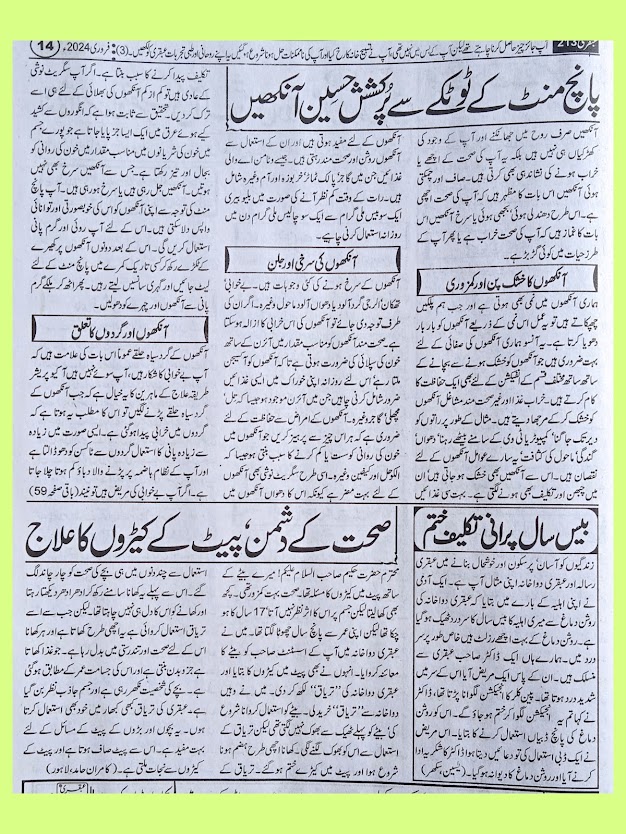 عبقری 213
آپ جائز چیز حاصل کرنا چاہتے تھے لیکن آپ کے بس میں نہیں تھی، آپ نے تسبیح خانہ کا رخ کیا اور آپ کی ناممکنات حل ہونا شروع ہو گئیں یہ اپنے روحانی اور طبی تجربات عبقری کو لکھیں۔ (3): فروری 2024ء
14
پانچ منٹ کے ٹوٹکے سے پُرکشش حسین آنکھیں
آنکھیں صرف روح میں جھانکنے اور آپ کے وجود کی
کھڑکیاں ہی نہیں ہیں بلکہ یہ آپ کی صحت کے اچھے یا
خراب ہونے کی نشاندہی بھی کرتی ہیں۔ صاف اور چمکتی
ہوئی آنکھیں اس بات کا مظہر ہیں کہ آپ کی صحت اچھی
ہے۔ اسی طرح دھندلی ہوئی، بجھی ہوئی یا سرخ آنکھیں اس
بات کا غماز ہیں کہ آپ کی صحت خراب ہے یا پھر آپ کے
طرز حیات میں کوئی گڑبڑ ہے۔
آنکھوں کا خشک پن اور کمزوری
ہماری آنکھوں میں نمی بھی ہوتی ہے اور جب ہم پلکیں
جھپکاتے ہیں تو یہ عمل اس نمی کے ذریعے آنکھوں کو بار بار
دھویا کرتا ہے۔ یہ آنسو ہماری آنکھوں کی صفائی کے لئے
بہت ضروری ہیں جو آنکھوں کو خشک ہونے سے بچانے کے
ساتھ ساتھ مختلف قسم کے انفیکشن کے لئے بھی ایک حفاظت کا
کام کرتے ہیں۔ خراب غذا اور غیر صحت مند مشاغل آنکھوں
کو خشک کر کے مرجھا دیتے ہیں۔ مثال کے طور پر راتوں کو
دیر تک جاگنا، کمپیوٹر یا ٹی وی کے سامنے بیٹھے رہنا، دھواں،
گندگی، ماحول کی کثافت، یہ سارے عوامل آنکھوں کے لئے
نقصان ہیں۔ اس سے آنکھیں بھی خشک ہو جاتی ہیں، ان
میں چبھن اور تکلیف بھی ہونے لگتی ہے۔ بہت سی غذائیں
آنکھوں کے لئے مفید ہوتی ہیں اور ان کے استعمال سے
آنکھیں روشن اور صحت مند رہتی ہیں۔ جیسے وٹامن اے والی
غذائیں جن میں گاجر، پالک، ٹماٹر، خربوزہ اور آم وغیرہ شامل
ہیں۔ رات کے وقت کم نظر آنے کی صورت میں بلیو بیری
ایک سو بیس ملی گرام سے ایک سو چالیس ملی گرام دن میں
روزانہ استعمال کرنی چاہیے۔
آنکھوں کی سرخی اور جلن
آنکھوں کے سرخ ہونے کی کئی وجوہات ہیں۔ بے خوابی،
تھکان، الرجی، گرد آلود یا دھواں آلود ماحول وغیرہ۔ اگر ان کی
طرف توجہ دی جائے تو آنکھوں کی اس خرابی کا ازالہ ہو سکتا
ہے۔ صحت مند آنکھوں کو مناسب مقدار میں آئرن کے ساتھ
خون کی سپلائی کی ضرورت ہوتی ہے تاکہ آنکھوں کو آکسیجن
ملتا رہے اس لئے روزانہ اپنی خوراک میں ایسی غذائیں
ضرور شامل کرنی چاہئیں جن میں آئرن موجود ہو جیسا کہ پھل،
مچھلی، گاجر وغیرہ۔ آنکھوں کے امراض سے حفاظت کے لئے
ضروری ہے کہ ہر اس چیز سے پرہیز کریں جو آنکھوں میں
خون کی روانی کو سست یا کم کرنے کا سبب بنتی ہو جیسا کہ
الکوحل اور کیفین وغیرہ۔ اسی طرح سگریٹ نوشی بھی آنکھوں
کے لئے بہت مضر ہے کیونکہ اس کا دھواں آنکھوں میں
تکلیف پیدا کرنے کا سبب بنتا ہے۔ اگر آپ سگریٹ نوشی
کے عادی ہیں تو کم از کم آنکھوں کی بھلائی کے لئے ہی اسے
ترک کر دیں۔ تحقیق سے ثابت ہوا ہے کہ انگوروں سے کشید
کیے ہوئے عرق میں ایک ایسا جز پایا جاتا ہے جو پورے جسم
میں خون کی شریانوں میں مناسب مقدار میں خون کی روانی کو
بحال اور تیز رکھتا ہے۔ جس سے آنکھیں سرخ بھی نہیں
ہوتیں۔ آنکھیں جل رہی ہیں یا سرخ ہو رہی ہیں۔ آپ پانچ
منٹ کی توجہ سے اپنی آنکھوں کو اس کی خوبصورتی اور توانائی
واپس دلا سکتی ہیں۔ اس کے لئے آپ روئی اور گرم پانی
استعمال کریں گی۔ اس کے بعد دونوں آنکھوں پر کھیرے
کے ٹکڑے رکھ کر کسی تاریک کمرے میں پانچ منٹ کے لئے
لیٹ جائیں اور گہری سانسیں لیتے رہیں۔ پھر اٹھ کر ہلکے گرم
پانی سے آنکھوں اور چہرے کو دھولیں۔
آنکھوں اور گردوں کا تعلق
آنکھوں کے گرد سیاہ حلقے عموماً اس بات کی علامت ہیں کہ
آپ بے خوابی کا شکار ہیں، آپ سوئے نہیں ہیں، آکیو پریشر
طریقہ علاج کے ماہرین کا یہ خیال ہے کہ جب آنکھوں کے
گرد سیاہ حلقے پڑنے لگیں تو اس کا مطلب یہ ہوتا ہے کہ
گردوں میں خرابی پیدا ہو گئی ہے۔ ایسی صورت میں زیادہ
سے زیادہ پانی کا استعمال گردوں سے ٹاکسن کو دھو ڈالتا ہے
اور آپ کے نظام ہاضمہ پر پڑنے والا دباؤ کم ہوتا چلا جاتا
ہے۔ اگر آپ بے خوابی کی مریض ہیں تو نیند (باقی صفحہ 59)
بیس سال پرانی تکلیف ختم
زندگیوں کو آسان، پرسکون اور خوشحال بنانے میں عبقری
رسالہ اور عبقری دواخانہ اپنی مثال آپ ہے۔ ایک آدمی
نے اپنی اہلیہ کے بارے میں بتایا کہ عبقری دواخانہ کی
روشن دماغ سے میری اہلیہ کا بیس سال کا سر درد ٹھیک ہو گیا
ہے۔ روشن دماغ کے بہت اچھے رزلٹ ہیں خاص طور پر سر
درد میں۔ ہمارے ہاں ایک ڈاکٹر صاحب عبقری سے
منسلک ہیں۔ ان کے پاس ایک مریض آیا اس کے سر میں
شدید درد ہوتا تھا۔ پین کلر کا انجیکشن لگوانا پڑتا تھا، ڈاکٹر
نے کہا تم یہ انجیکشن لگوا کر ختم ہو جاؤ گے۔ اس کو روشن
دماغ کی پانچ ڈبیاں استعمال کرنے کا بتایا۔ اس مریض
نے ایک ڈبی استعمال کی تو دعائیں دیتا ہوا ڈاکٹر کا شکریہ ادا
کرنے آیا اور روشن دماغ کا دیوانہ ہو گیا۔ (یٰسین، سکھر)
صحت کے دشمن، پیٹ کے کیڑوں کا علاج
محترم حضرت حکیم صاحب السلام علیکم! میرے بیٹے کے
ساتھ پیٹ میں کیڑوں کا مسئلہ تھا۔ صحت بہت کمزور تھی۔ کچھ
بھی کھا لیتا لیکن جسم پر اس کا اثر نظر نہیں آتا، 17 سال کا ہو
چکا تھا لیکن اپنی عمر سے پانچ سال چھوٹا لگتا تھا۔ میں نے
عبقری دواخانہ میں آپ کے اسسٹنٹ صاحب کو بیٹے کا
معائنہ کروایا۔ انہوں نے بھی پیٹ میں کیڑوں کا بتایا اور
عبقری دواخانہ کی ”تریاق“ لکھ کر دی۔ میں نے وہیں
دواخانہ سے ”تریاق“ خرید لی۔ بیٹے کو استعمال کروانا شروع
کی، بیٹے کو پہلے ٹھیک سے بھوک نہیں لگتی تھی لیکن تریاق کے
استعمال سے اس کو بھوک لگنے لگی۔ کھانا اچھی طرح ہضم ہونا
شروع ہوا اور پیٹ میں کیڑے ختم ہو گئے۔ تریاق کے
استعمال سے چند دنوں میں ہی بچے کی صحت کو چار چاند لگ
گئے۔ اس سے پہلے یہ کھانا سامنے رکھ کر ادھر ادھر دیکھتا رہتا
اور کھانے کو اس کا دل ہی نہیں چاہتا تھا۔ لیکن جب سے اسے
تریاق استعمال کروائی ہے یہ اچھی طرح کھاتا ہے اور ہر کھانا
اس کے لئے صحت اور تندرستی میں بدل رہا ہے۔ جو غذا کھاتا
ہے جزو بدن بنتی ہے اور اس کی جسامت عمر کے مطابق ہو گئی
ہے۔ بچے کی شخصیت نکھر رہی ہے اور جسم جاذب نظر بن گیا
ہے۔ عبقری کی تریاق کبھی کبھار میں خود بھی استعمال کرتی
ہوں۔ یہ بچوں اور بڑوں کے پیٹ کے مسائل کے لئے
بہت مفید ہے۔ اس سے پیٹ صاف ہوتا ہے اور پیٹ کے
کیڑوں سے نجات ملتی ہے۔ (کامران حامد، لاہور)